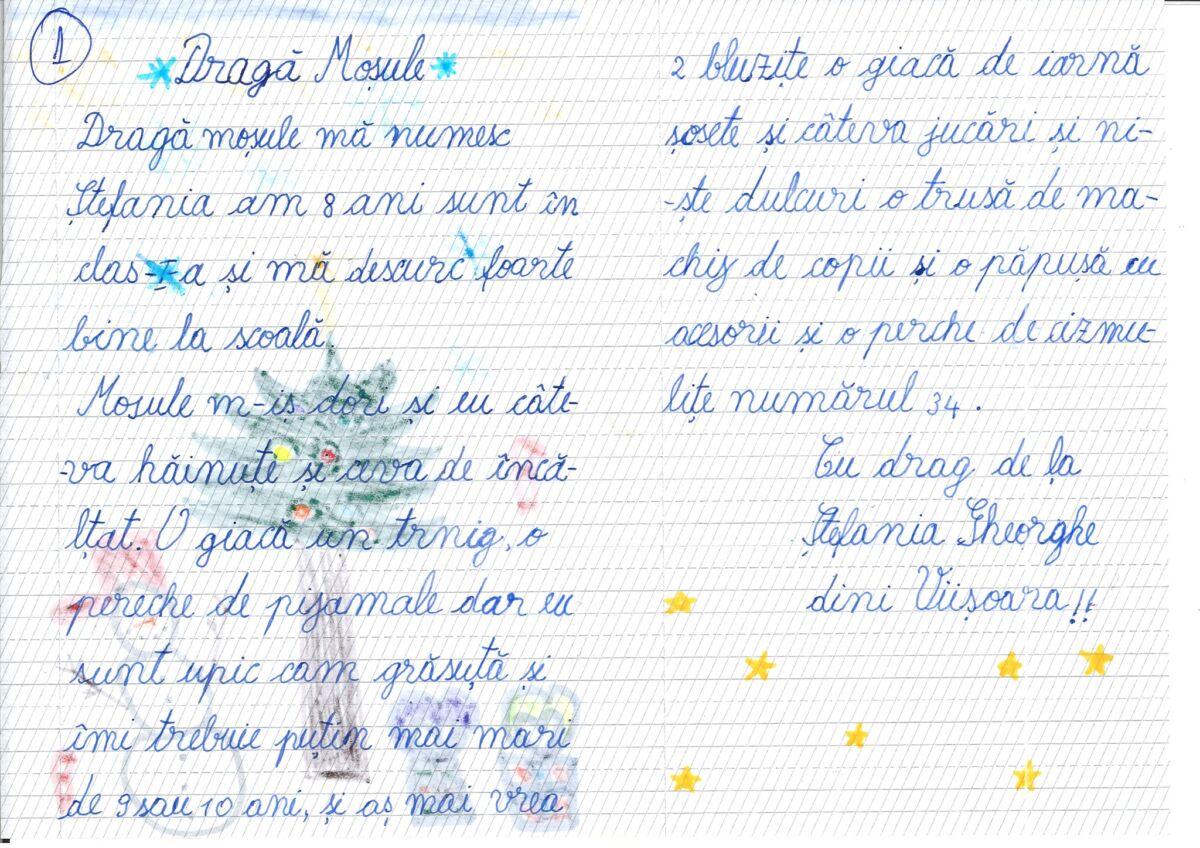 1
Dragă Moșule
Dragă moșule mă numesc
Ștefania am 8 ani sunt în
clas-I-a și mă descurc foarte
bine la scoală.
Mosule m-iș dori și eu câte-
-va hăinuțe și ceva de încă-
lțat. O giacă un trnig, o
pereche de pijamale dar eu
sunt upic cam grăsuță și
îmi trebuie puțin mai mari
de 9 sau 10 ani, și aș mai vrea
2 bluzițe o giacă de iarnă
șosete și câteva jucări și ni-
-ște dulcuri o trusă de ma-
chij de copii și o păpușă cu
acesorii și o perche de cizmu-
lițe numărul 34.
Cu drag de la
Ștefania Gheorghe
dini Viișoara!!